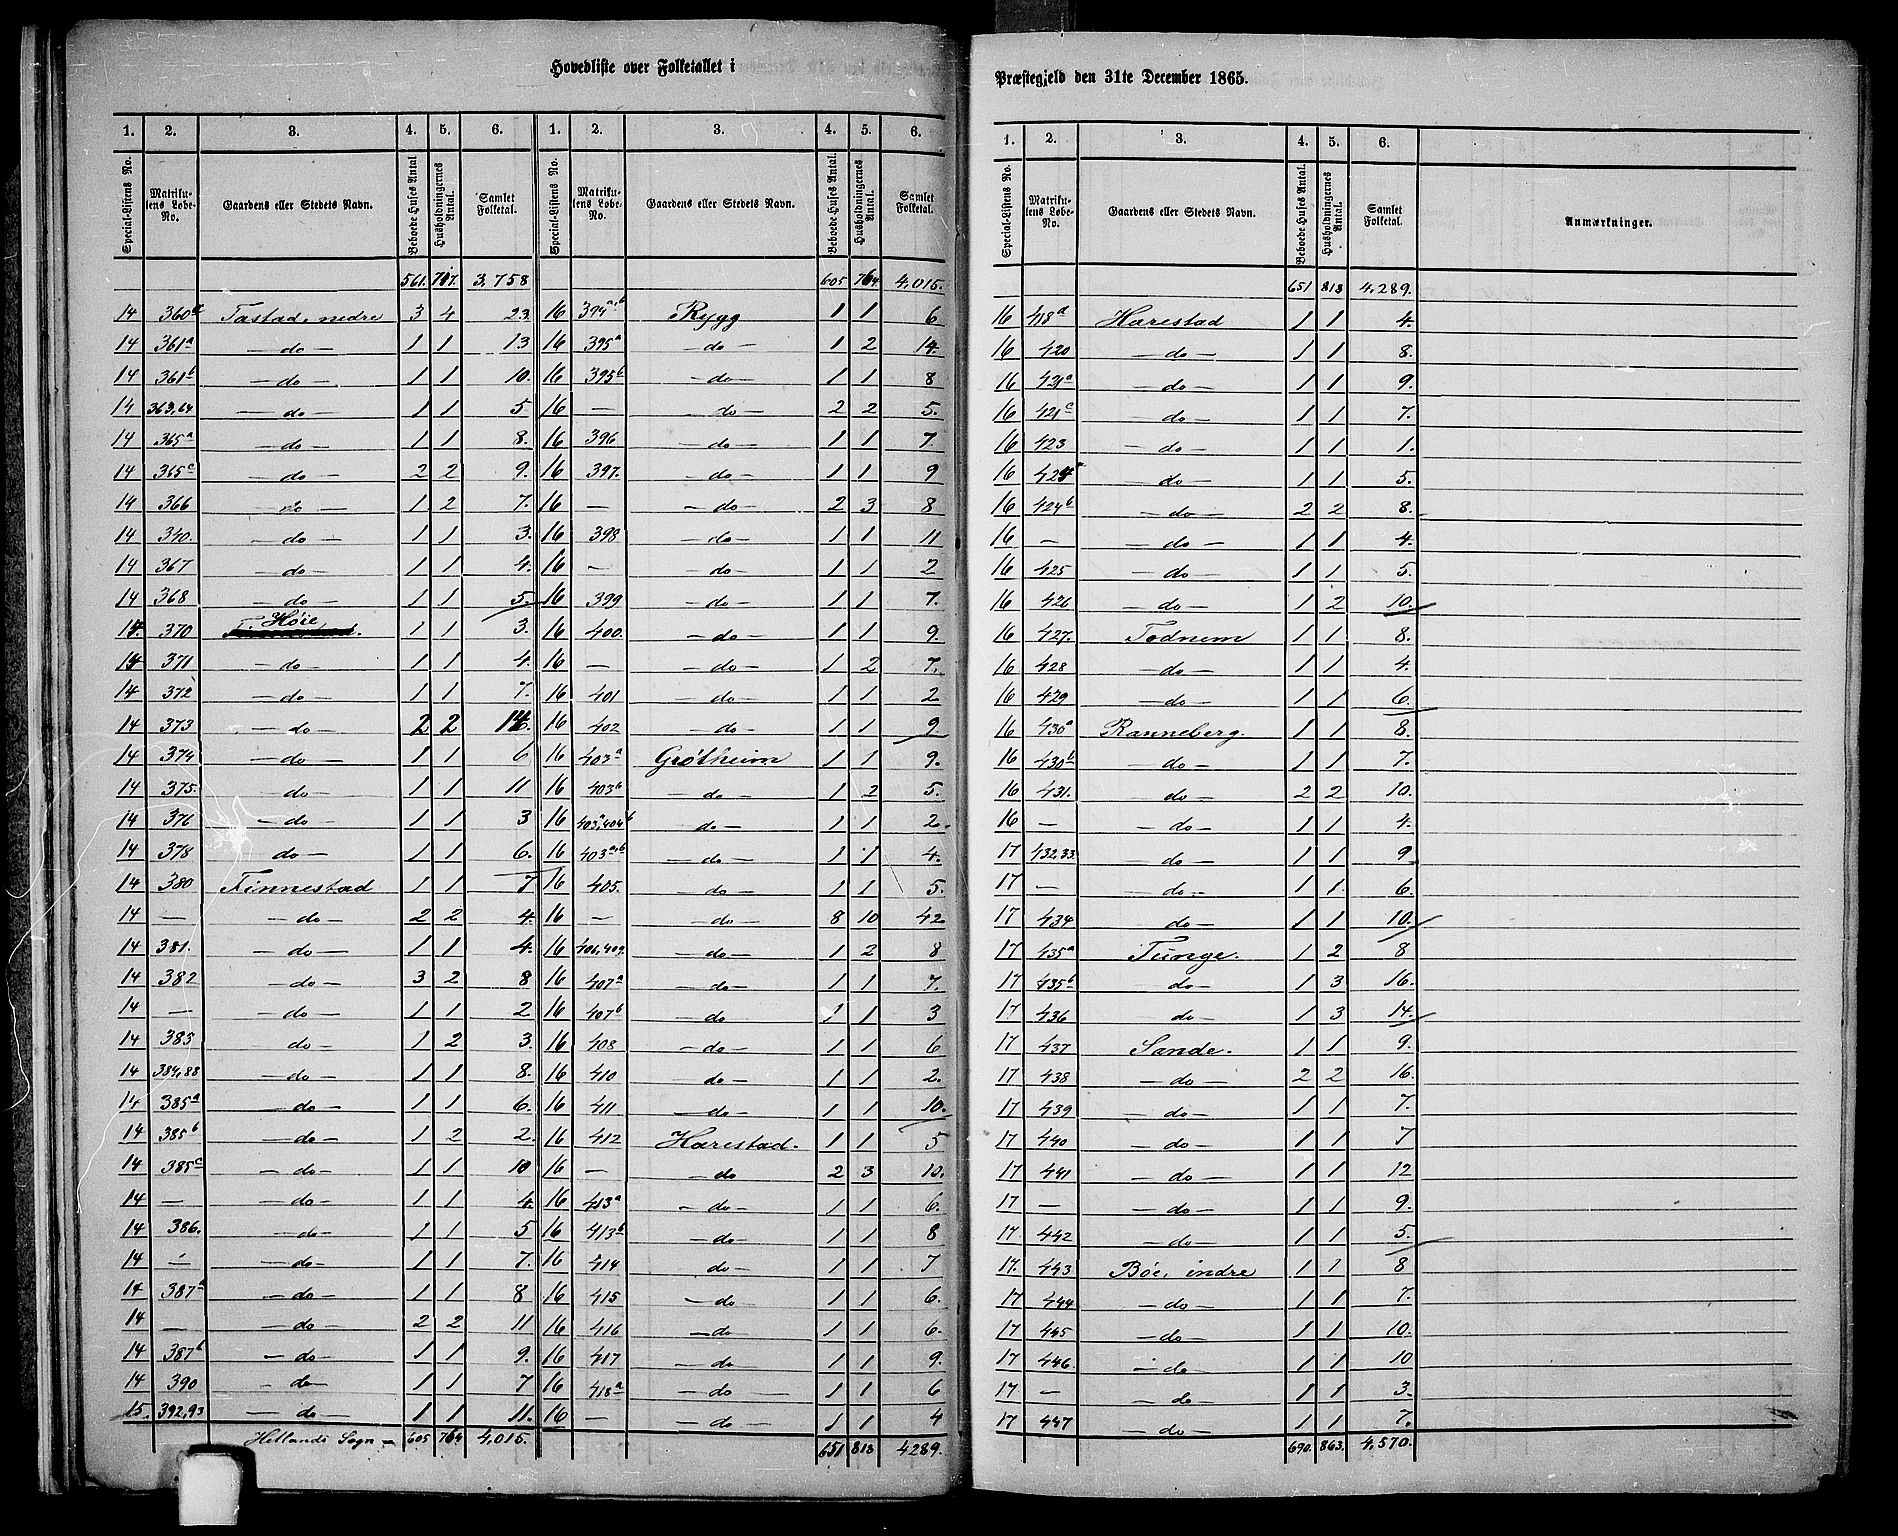 Hovedliste over Folketallet i
1. 2. 3. 4. 5. 6. 1. 2. 3. 4. 5. 6.
Special-Listens No. Matrikulens Løbe-No. Gaardens eller Stedets Navn. Beboede Huses Antal Husholdningernes Antal. Samlet Folketal. Special-Listens No. Matrikulens Løbe-No. Gaardens eller Stedets Navn. Beboede Huses Antal. Husholdningernes Antal. Samlet Folketal.
561. 717. 3,758 605 764 4,015.
14 360 Tastad, nedre 3 4 23. 16 394 a,b Rygg 1 1 6
14 361a — do — 1 1 13 16 395a — do — 1 2 14.
14 361b — do — 1 1 10. 16 395b — do — 1 1 8
14 363,64 — do — 1 1 5 16 — do — 2 2 5.
14 365a — do — 1 1 8. 16 396 — do — 1 1 7.
14 365c — do — 2 2 9. 16 397. — do — 1 1 9
14 366 — do — 1 2 7. 16 — — do — 2 3 8
14 340. — do — 1 1 3. 16 398 — do — 1 1 11
14 367 — do — 1 1 4. 16 — — do — 1 1 2
14 368 — do — 1 1 5. 16 399 — do — 1 1 7.
14. 370 Höie 1 1 3. 16 400. — do — 1 1 9.
14 371 — do — 1 1 4. 16 — — do — 1 2 7.
14 372 — do — 1 1 7. 16 401 — do — 1 1 2
14 373 — do — 2 2 16. 16 402 — do — 1 1 9
14 374 — do — 1 1 6 16 403a Grötheim 1 1 9.
14 375. — do — 1 1 11 16 403b — do — 1 2 5.
14 376 — do — 1 1 3 16 403a,404b do — 1 1 2.
14 378 do — 1 1 6. 16 403a,b — do — 1 1 4.
14 380 Finnestad 1 1 7 16 405. — do — 1 1 5.
14 — — do — 2 2 4. 16 — — do — 8 10 42
14 381. — do — 1 1 4. 16 406,409. — do — 1 2 8
14 382 — do — 3 2 8 16 407a — do — 1 1 7.
14 — — do — 1 1 2 16 407b — do 1 1 3
14 383 do — 1 2 3. 16 408 — do — 1 1 6
14 384,88 — do — 1 1 8. 16 410 do — 1 1 2.
14 385a — do — 1 1 6. 16 411 — do — 1 1 10.
14 385b — do — 1 2 2. 16 412 Harestad. 1 1 5
14 385c — do — 1 1 10 16 — — do 2 3 10.
14 — — do — 1 1 4. 16 413a — do — 1 1 6.
14 386. — do — 1 1 5 16 413b — do — 1 1 8
14 — — do — 1 1 7. 16 414 do — 1 1 7
14 387a — do — 1 1 8 16 415 — do 1 1 6.
14 — — do — 2 2 11 16 416 — do 1 1 6.
14 387b — do — 1 1 9. 16 417 — do — 1 1 9.
14 390 — do — 1 1 7 16 418a — do — 1 1 6
15. 392,93 — do — 1 1 11. 16 — — do — 1 1 4
Hetlands Sogn — 605 764 4,015. 651 813 4289.
Præstegjeld den 31te December 1865.
1. 2. 3. 4. 5. 6.
Special-Listens No. Matrikulens Løbe-No. Gaardens eller Stedets Navn. Beboede Huses Antal. Husholdningernes Antal. Samlet Folketal. Anmærkninger.
651 813 4,289.
16 418a Harestad 1 1 4.
16 420 — do — 1 1 8.
16 421a — do — 1 1 9.
16 421c — do — 1 1 7.
16 423 — do — 1 1 1.
16 424 — do — 1 1 5.
16 424b — do — 2 2 8.
16 — — do — 1 1 4.
16 425 — do — 1 1 5.
16 426 — do — 1 2 10.
16 427. Todnem 1 1 8.
16 428 — do — 1 1 4.
16 429 — do — 1 1 6.
16 430a Ranneberg. 1 1 8.
16 430b — do — 1 1 7.
16 431. — do — 2 2 10.
16 — — do — 1 1 4.
17 432,33. — do — 1 1 9
17 — — do. — 1 1 6.
17 434 do — 1 1 10.
17 435a Tunge. 1 2 8
17 435b do — 1 3 16.
17 436 do — 1 3 14.
17 437 Sande. 1 1 9.
17 438 — do — 2 2 16.
17 439 — do — 1 1 7.
17 440 — do — 1 1 7
17 441 — do — 1 1 12
17 — — do — 1 1 9.
17 442 — do — 1 1 5.
17. 443 Böe, indre 1 1 8
17 444 — do — 1 1 7.
17 445 — do — 1 1 10.
17 446. — do — 1 1 10
17 — do — 1 1 3.
17 447 — do — 1 1 7.
690. 863. 4,570.